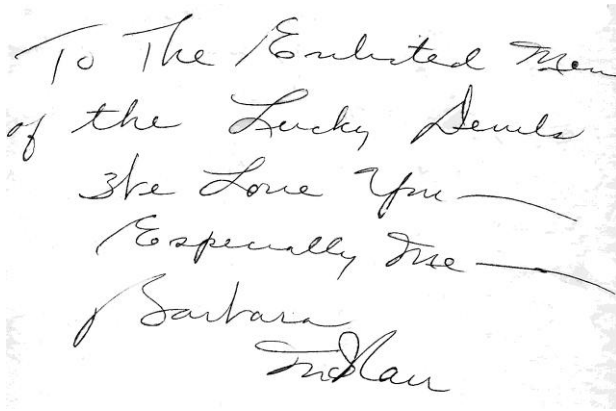 To The Enlisted Men
of the Lucky Devils
We Love You—
Especially Me—
Barbara
McNair